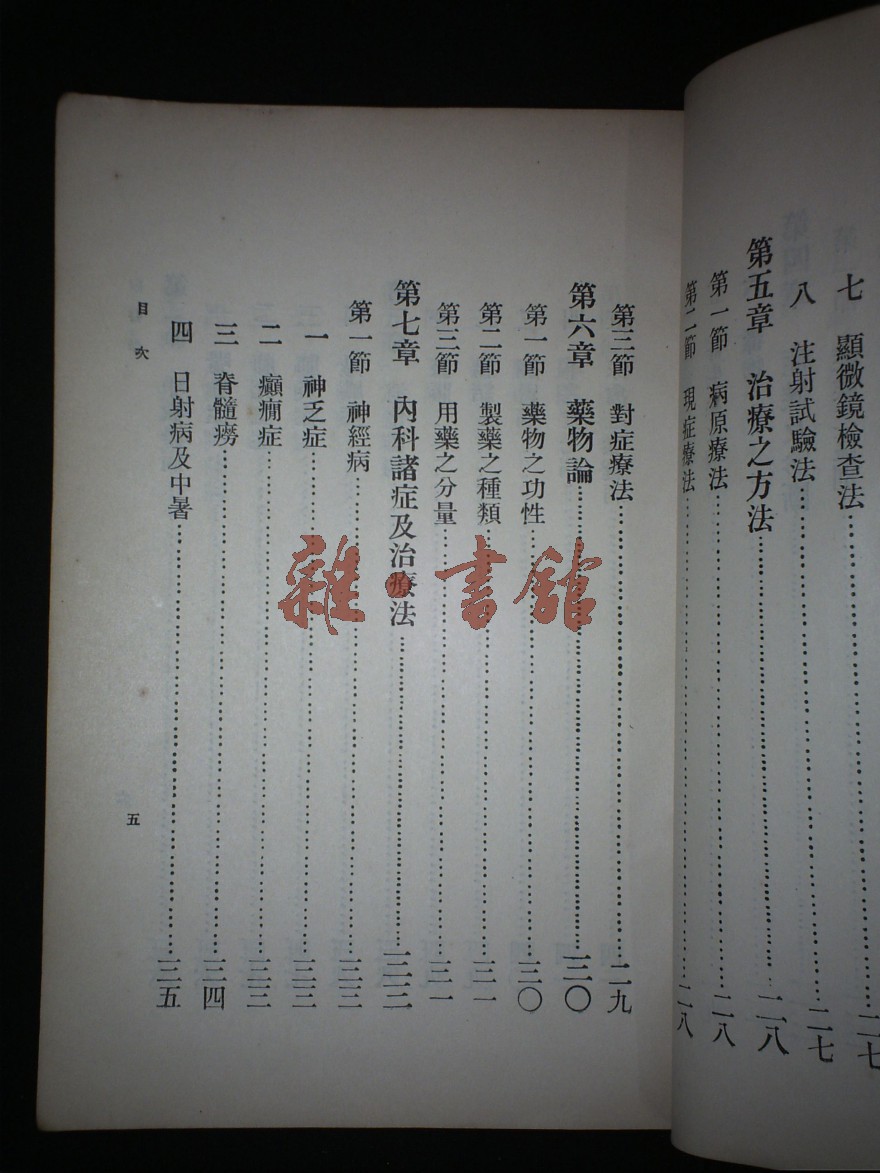 七　顯微鏡檢查法……二七
八　注射試驗法……二七
第五章　治療之方法……二八
第一節　病原療法……二八
第二節　現症療法……二八
第三節　對症療法……二九
第六章　藥物論……三〇
第一節　藥物之功性……三〇
第二節　製藥之種類……三一
第三節　用藥之分量……三一
第七章　內科諸症及治療法……三三
第一節　神經病……三三
一　神乏症……三三
二　癲癇症……三三
三　脊髓癆……三四
四　日射病及中暑……三五
目次　五
雜·書館